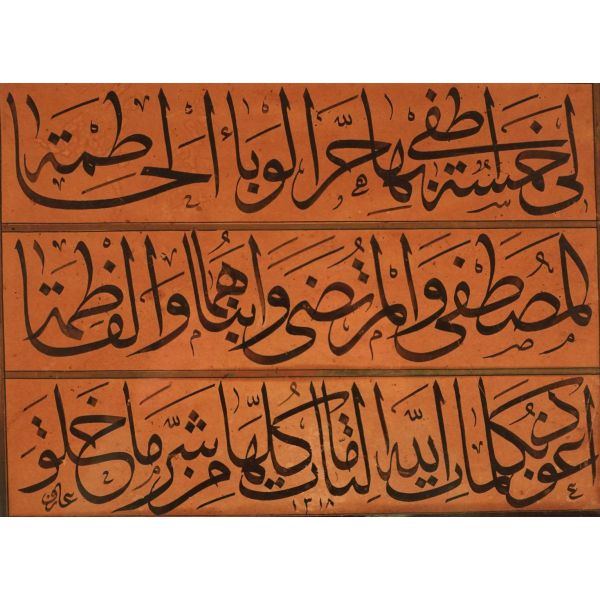 لى خمسة اطفى بها حر الوباء الحاطمة
المصطفى والمرتضى وابناهما والفاطمة
اعوذ بكلمات الله التامات كلها من شر ما خلق
عارف
١٣١٨